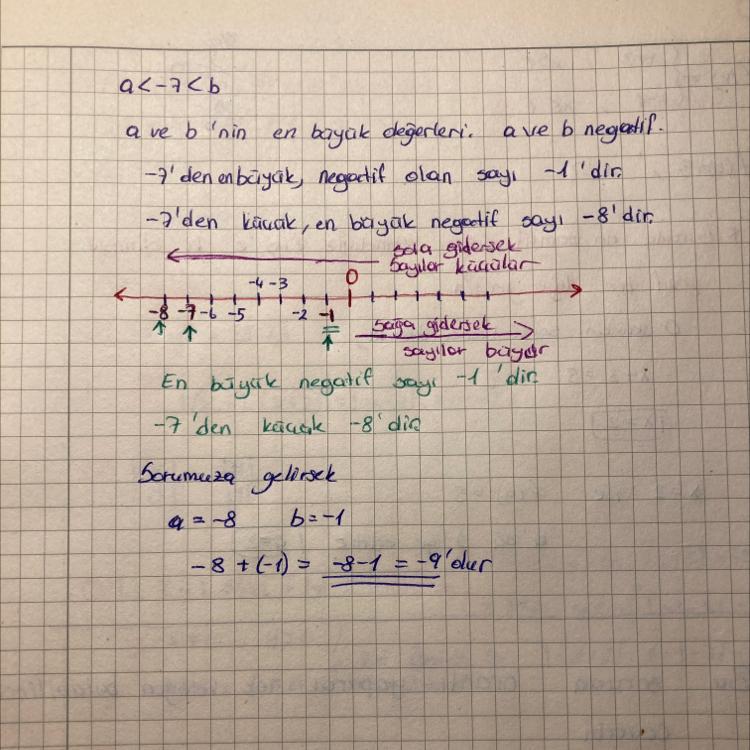 a < -7 < b
a ve b 'nin en büyük değerleri. a ve b negatif.
-7'den en büyük, negatif olan sayı -1 'dir.
-7'den küçük, en büyük negatif sayı -8'dir.
sola gidersek
sayılar küçülür
-4 -3 0
-8 -7 -6 -5 -2 -1
sağa gidersek
sayılar büyür
En büyük negatif sayı -1 'dir.
-7'den küçük -8'dir.
Sorumuza gelirsek
a = -8 b = -1
-8 + (-1) = -8-1 = -9'dur